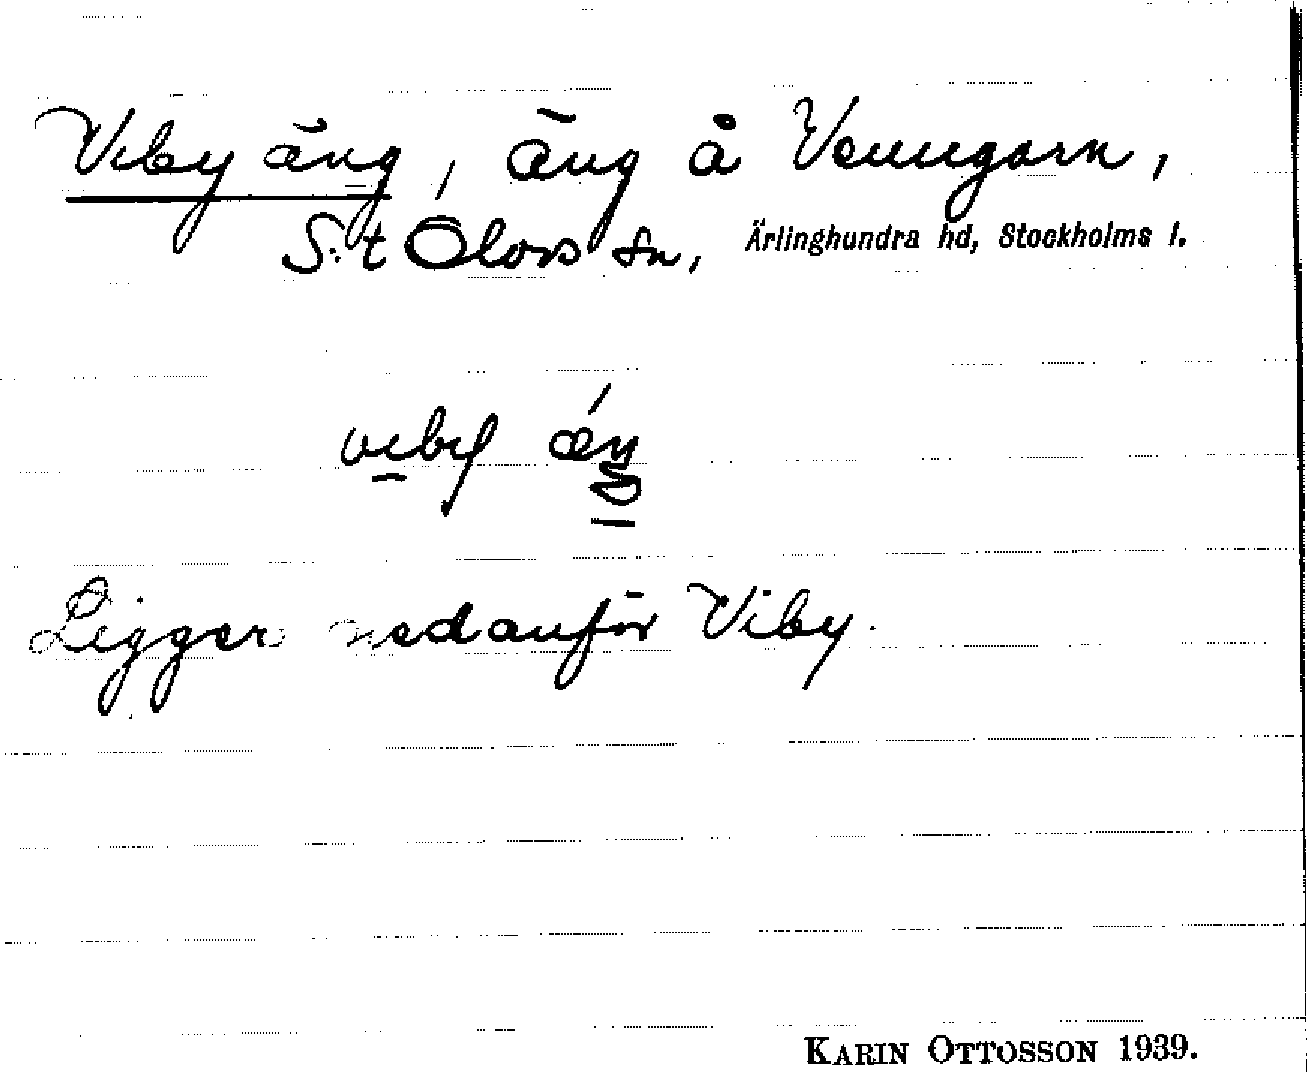 Viby äng, äng å Venngarn,
S:t Olovs sn, Ärlinghundra hd, Stockholms l.
Ligger nedanför Viby.
KARIN OTTOSSON 1939.